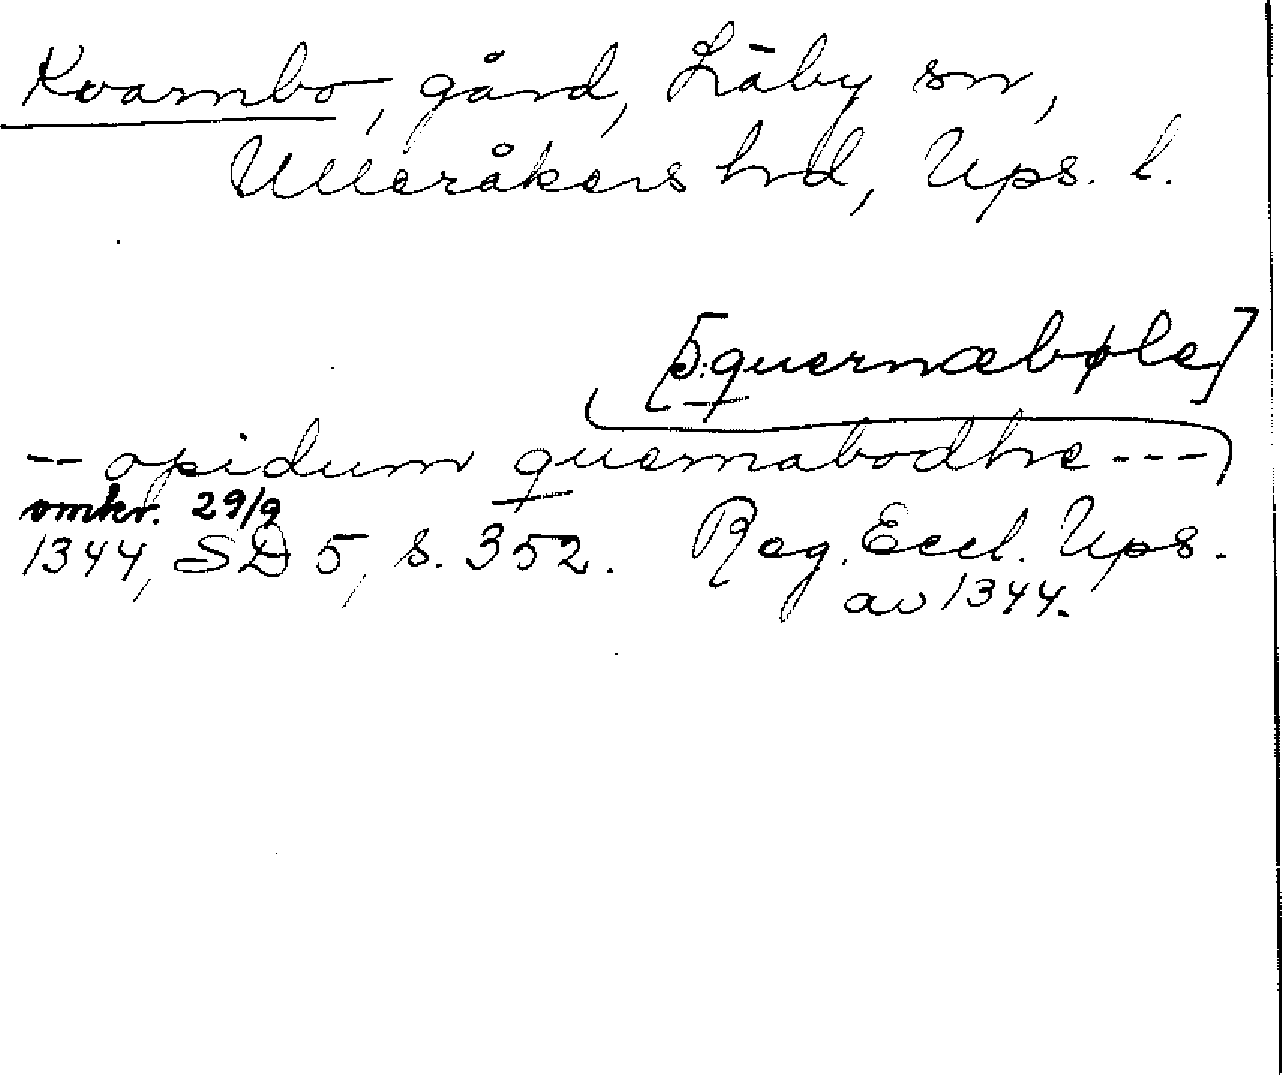 Kvarnbo, gård, Läby sn,
Ulleråkers hrd, Ups. l.
[ɔ: quernæbøle]
-- opidum quernabodhre ---,
omkr. 29/9
1344, SD 5, s. 352. Reg. Eccl. Ups.
av 1344.